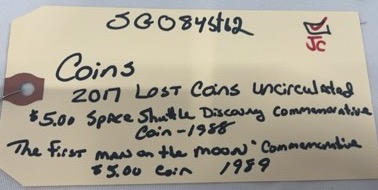 SGO84St62
JC
Coins
2017 Lost Coins uncirculated
$5.00 Space Shuttle Discovery Commemorative
Coin - 1988
The First man on the moon" Commemorative
$5.00 Coin 1989